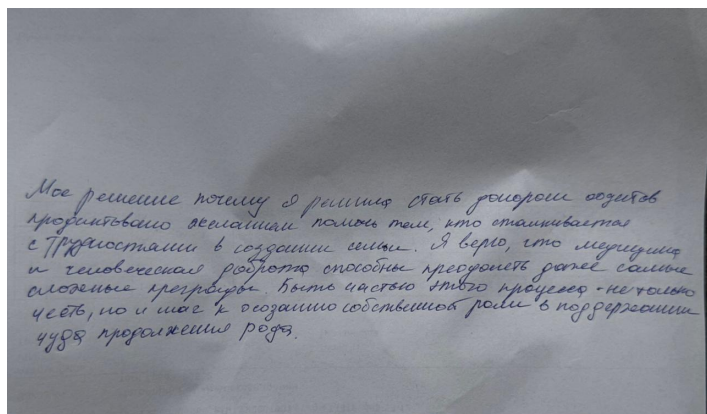 Мое решение почему я решила стать донором ооцитов
продиктовано желанием помочь тем, кто сталкивается
с трудностями в создании семьи. Я верю, что медицина
и человеческая доброта способны преодолеть даже самые
сложные преграды. Быть частью этого процесса - не только
честь, но и шаг к осознанию собственной роли в поддержании
чуда продолжения рода.